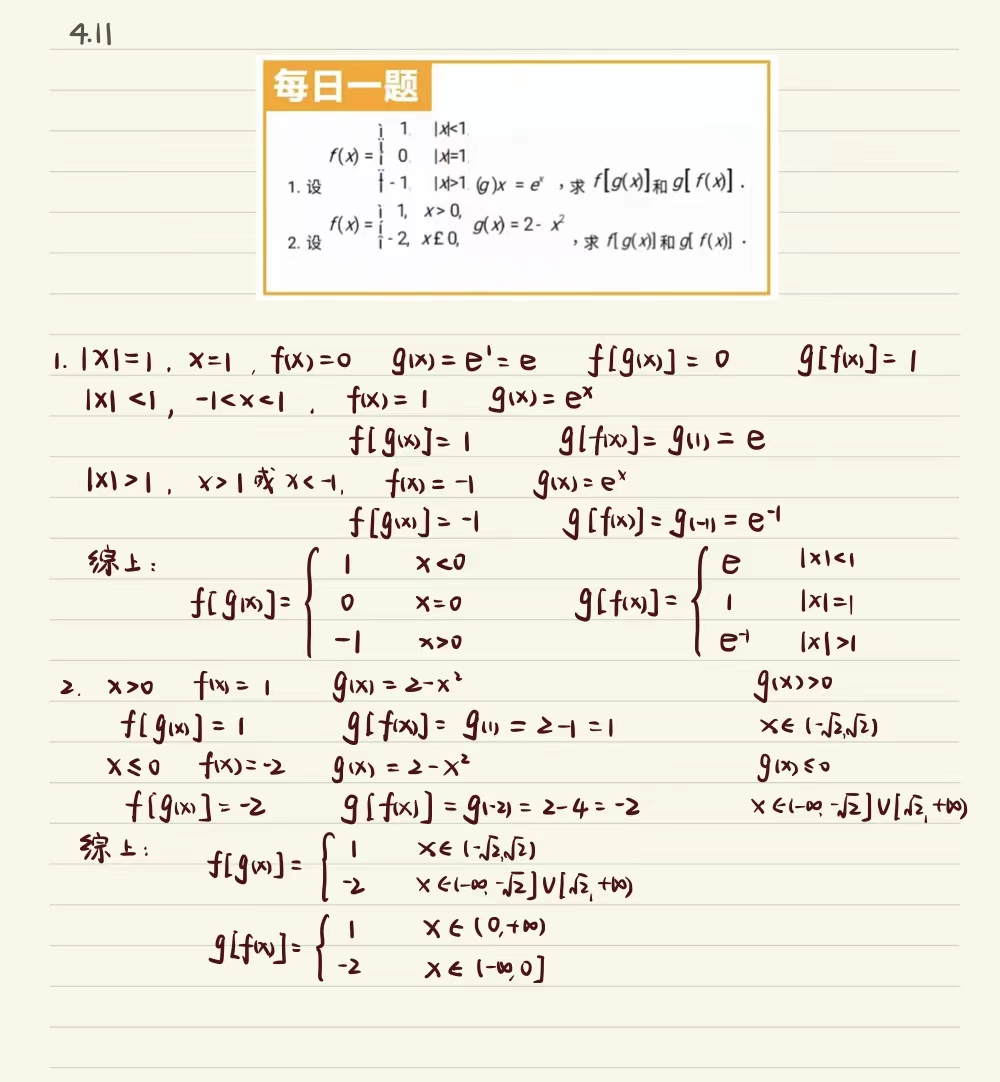 4.11
每日一题
1. 设 f(x) = { 1. |x|<1. 0. |x|=1. -1. |x|>1. (g)x = eˣ ，求 f[g(x)]和 g[f(x)] .
2. 设 f(x) = { 1, x > 0, -2, x£0, g(x) = 2 - x² ，求 f[g(x)] 和 g[f(x)] .
1. |x|=1 , x=1 , f(x)=0 g(x)=e¹=e f[g(x)]=0 g[f(x)]=1
|x|<1 , -1<x<1 , f(x)=1 g(x)=eˣ
f[g(x)]=1 g[f(x)]=g(1)=e
|x|>1 , x>1或x<-1, f(x)=-1 g(x)=eˣ
f[g(x)]=-1 g[f(x)]=g(-1)=e⁻¹
综上：
f[g(x)]= { 1 x<0 0 x=0 -1 x>0 g[f(x)]= { e |x|<1 1 |x|=1 e⁻¹ |x|>1
2. x>0 f(x)=1 g(x)=2-x² g(x)>0
f[g(x)]=1 g[f(x)]=g(1)=2-1=1 x∈(-√2,√2)
x≤0 f(x)=-2 g(x)=2-x² g(x)≤0
f[g(x)]=-2 g[f(x)]=g(-2)=2-4=-2 x∈(-∞,-√2]∪[√2,+∞)
综上：
f[g(x)]= { 1 x∈(-√2,√2) -2 x∈(-∞,-√2]∪[√2,+∞)
g[f(x)]= { 1 x∈(0,+∞) -2 x∈(-∞,0]